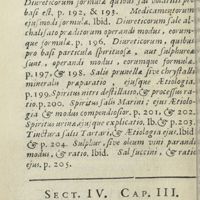 Diureticorum formulæ quibus sal volatilis pro
basi est. p. 192, & 193. Medicamentorum
ejusmodi formulæ. Ibid. Diureticorum sale al-
chalisato præditorum operandi modus, eorum-
que formulæ. p. 196. Diureticorum, quibus
pro basi particulæ spirituosæ, aut sulphureæ
sunt, operandi modus, eorumque formulæ.
p. 197, & 198. Salis prunellæ sive chrystalli
mineralis præparatio, ejusque Ætiologia.
p. 199. Spiritus nitri destillatio, & processus ra-
tio. p. 200. Spiritus salis Marini; ejus Ætiolo-
gia & modus compendiosior. p. 201, & 202.
Spiritus urinæ, ejusque explicatio. Ib, & p. 203.
Tinctura salis Tartari, & Ætiologia ejus. Ibid
& p. 204. Sulphur, sive oleum vini parandi
modus, & ratio. Ibid. Sal succini, & ratio
ejus. p. 205.
SECT. IV. CAP. III.